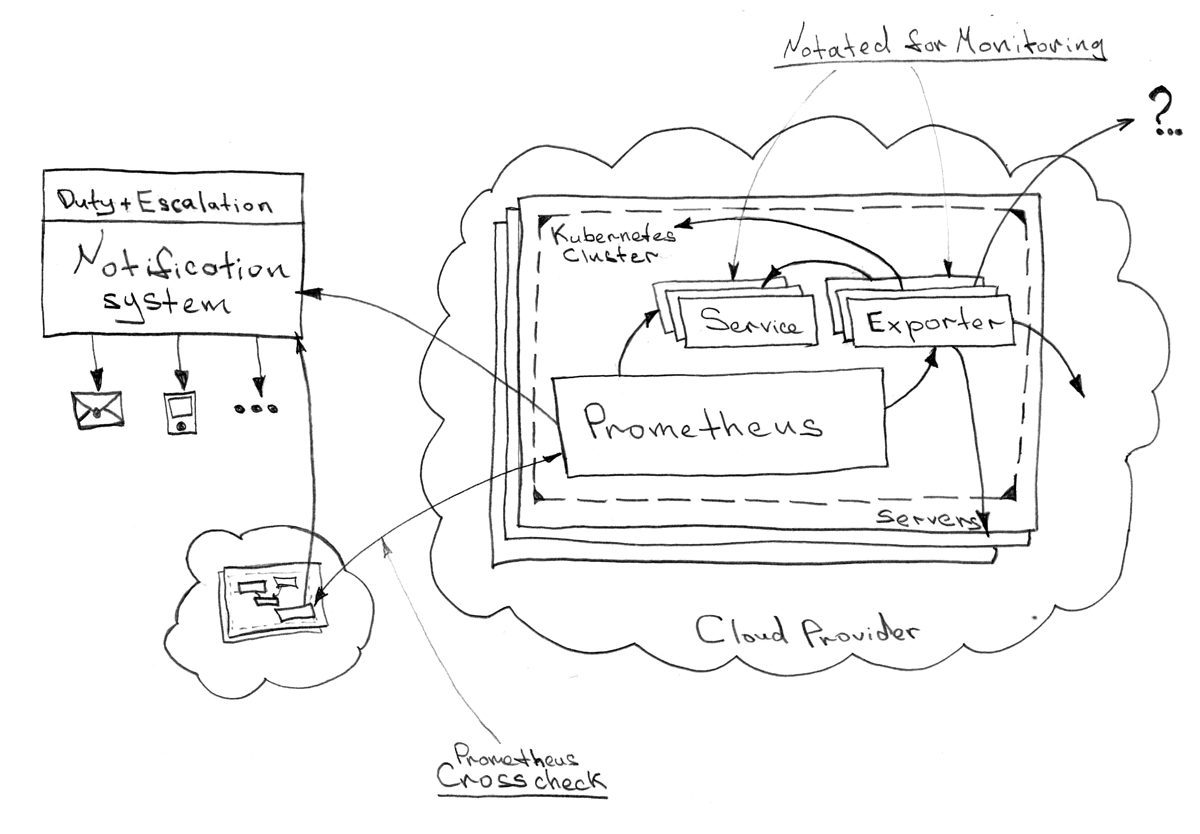 Notated for Monitoring
?...
Duty + Escalation
Notification
system
Kubernetes
Cluster
Service
Exporter
Prometheus
Servers
Cloud Provider
Prometheus
Crosscheck